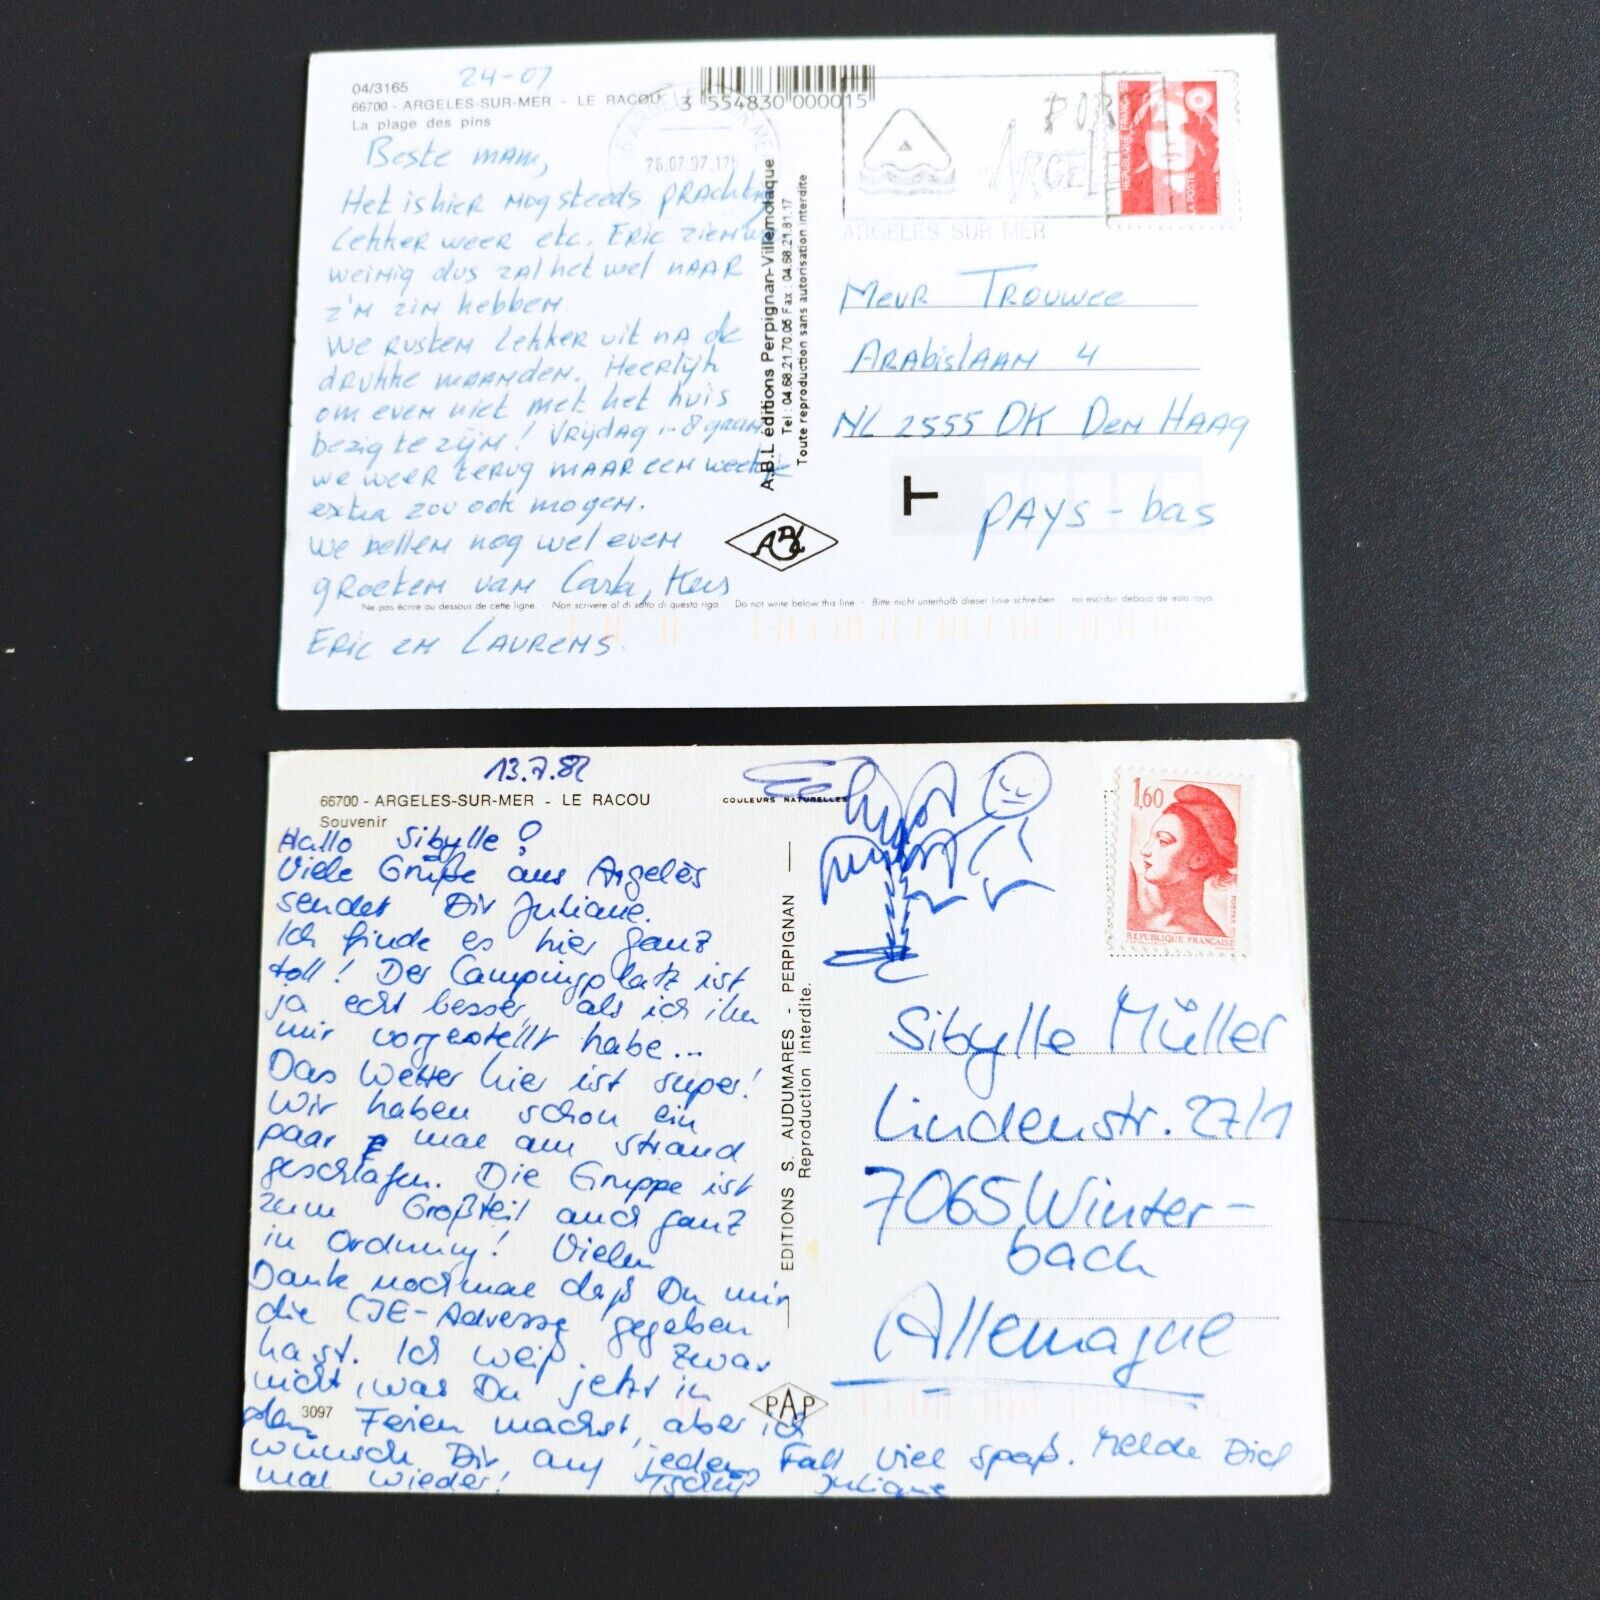 24-07
04/3165
66700 - ARGELES-SUR-MER - LE RACOU
La plage des pins
3 554830 000015
Beste mam,
Het is hier nog steeds prachtig
lekker weer etc. Eric zien wij
weinig dus zal het wel naar
z'n zin hebben.
We rusten lekker uit na de
drukke maanden. Heerlijk
om even niet met het huis
bezig te zijn! Vrijdag 1-8 gaan
we weer terug maar een weekje
extra zou ook mogen.
We bellen nog wel even
groeten van Carla, Kees
Eric en Laurens.
A.B.L éditions Perpignan-Villemolaque
Tel : 04.68.21.70.05 Fax : 04.68.21.81.17
Toute reproduction sans autorisation interdite
26.07.97.17H
PORT
ARGELES
ARGELES SUR MER
REPUBLIQUE FRANCAISE
LA POSTE
Mevr Trouwee
Arabislaan 4
NL 2555 DK Den Haag
T
Pays-bas
Ne pas écrire au dessous de cette ligne - Non scrivere al di sotto di questa riga - Do not write below this line - Bitte nicht unterhalb dieser linie schreiben - no escribir debajo de esta raya
13.7.82
66700 - ARGELES-SUR-MER - LE RACOU
Souvenir
COULEURS NATURELLES
Hallo Sibylle!
Viele Grüße aus Argelès
sendet Dir Juliane.
Ich finde es hier ganz
toll! Der Campingplatz ist
ja echt besser, als ich ihn
mir vorgestellt habe...
Das Wetter hier ist super!
Wir haben schon ein
paar mal am Strand
geschlafen. Die Gruppe ist
zum Großteil auch ganz
in Ordnung! Vielen
Dank nochmal daß Du mir
die CJE-Adresse gegeben
hast. Ich weiß zwar
nicht, was Du jetzt in
den Ferien machst, aber ich
wünsch Dir auf jeden Fall viel Spaß. Melde Dich
mal wieder! Tschüß Juliane
3097
PAP
EDITIONS S. AUDUMARES - PERPIGNAN
Reproduction interdite.
1,60
POSTES
REPUBLIQUE FRANCAISE
Sibylle Müller
Lindenstr. 27/1
7065 Winter-
bach
Allemagne